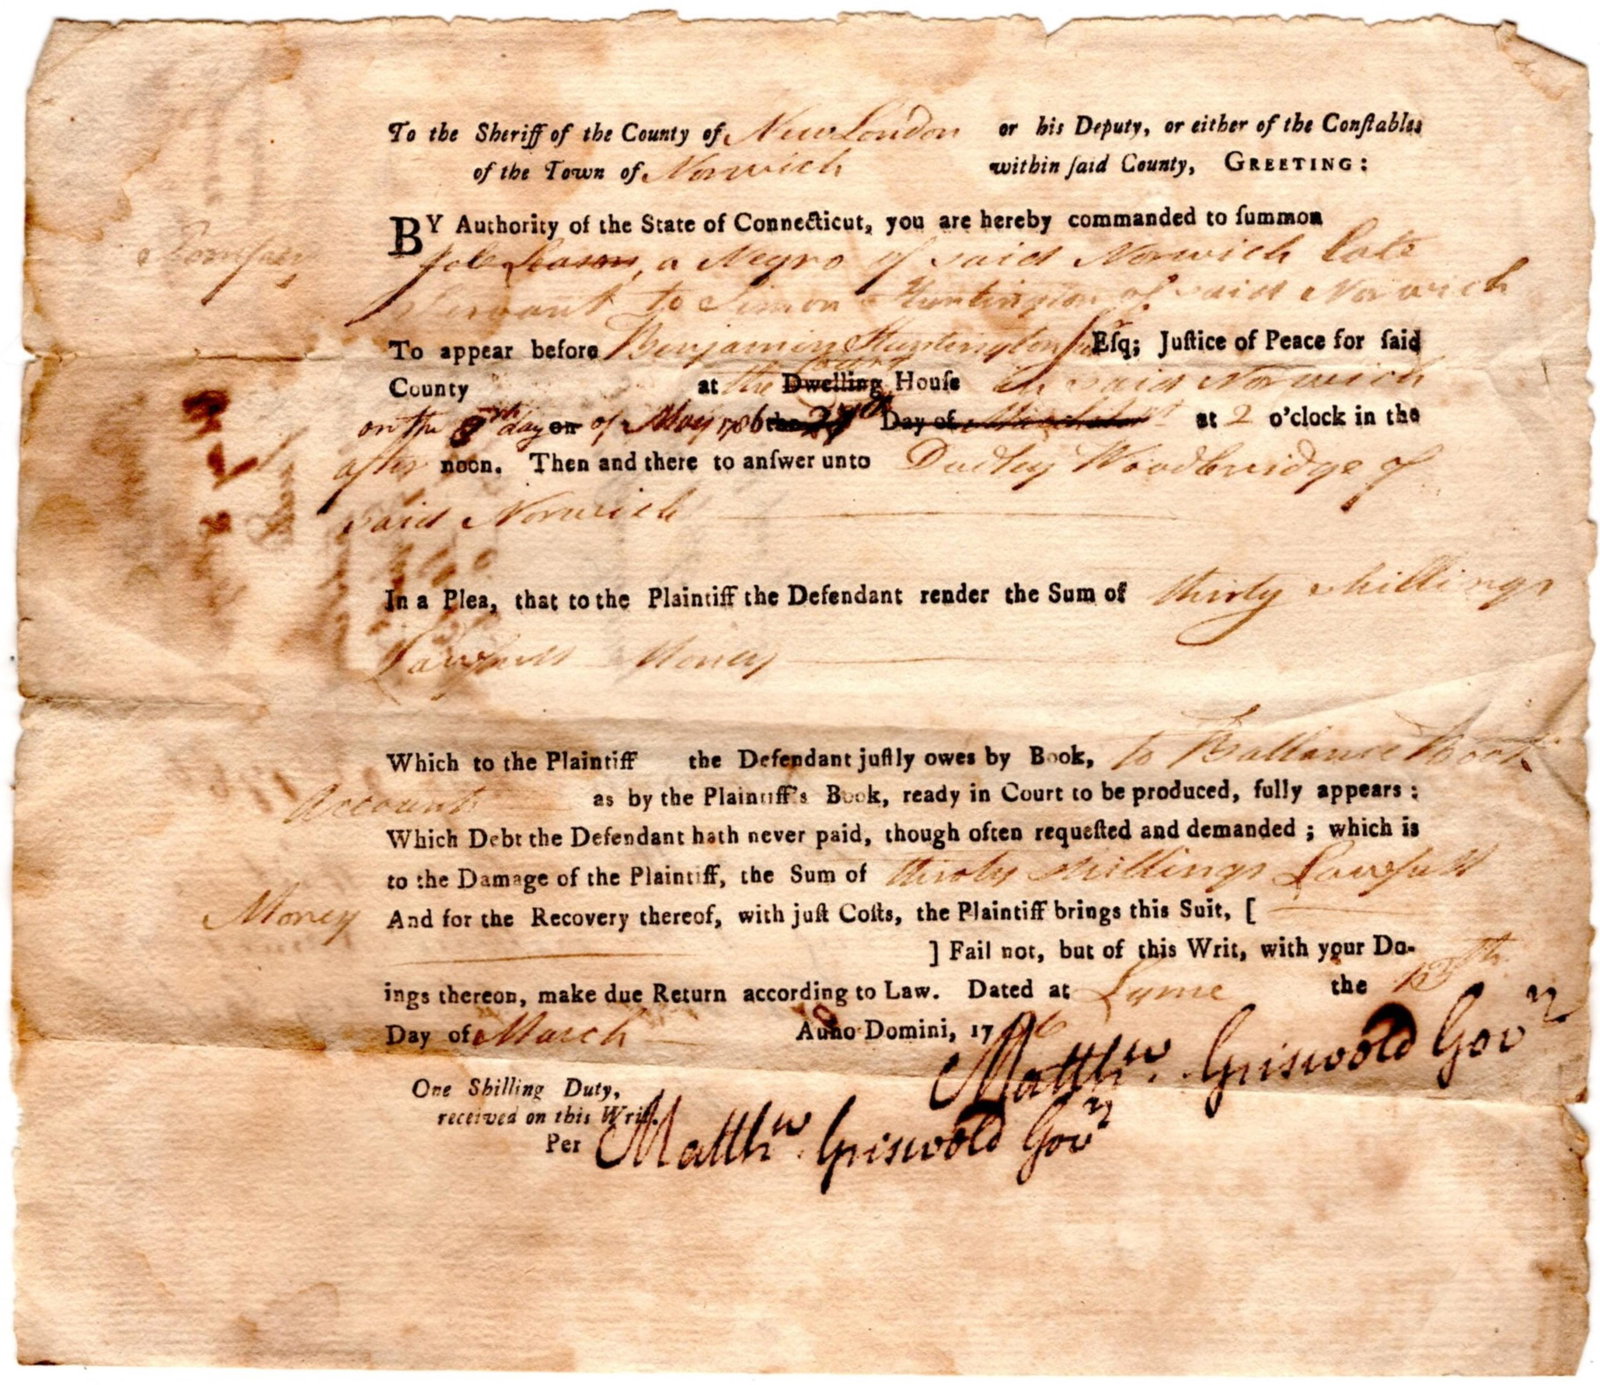 To the Sheriff of the County of New London or his Deputy, or either of the Conſtables
of the Town of Norwich within ſaid County, GREETING:
BY Authority of the State of Connecticut, you are hereby commanded to ſummon
a Negro of said Norwich late
Servant to Simon Huntington of said Norwich
To appear before Benjamin Huntington Eſq; Juſtice of Peace for ſaid
County at the Dwelling Houſe in said Norwich
on the day on of May 1786 the 27th Day of at 2 o'clock in the
after noon. Then and there to anſwer unto Dudley Woodbridge of
said Norwich
In a Plea, that to the Plaintiff the Defendant render the Sum of thirty shillings
Lawfull Money
Which to the Plaintiff the Defendant juſtly owes by Book, to Ballance Book
Accounts as by the Plaintiff's Book, ready in Court to be produced, fully appears:
Which Debt the Defendant hath never paid, though often requeſted and demanded; which is
to the Damage of the Plaintiff, the Sum of thirty shillings Lawfull
Money And for the Recovery thereof, with juſt Coſts, the Plaintiff brings this Suit, [
] Fail not, but of this Writ, with your Do-
ings thereon, make due Return according to Law. Dated at Lyme the
Day of March Anno Domini, 1786
Matthw. Griswold Govr
One Shilling Duty,
received on this Writ.
Per Matthw. Griswold Govr